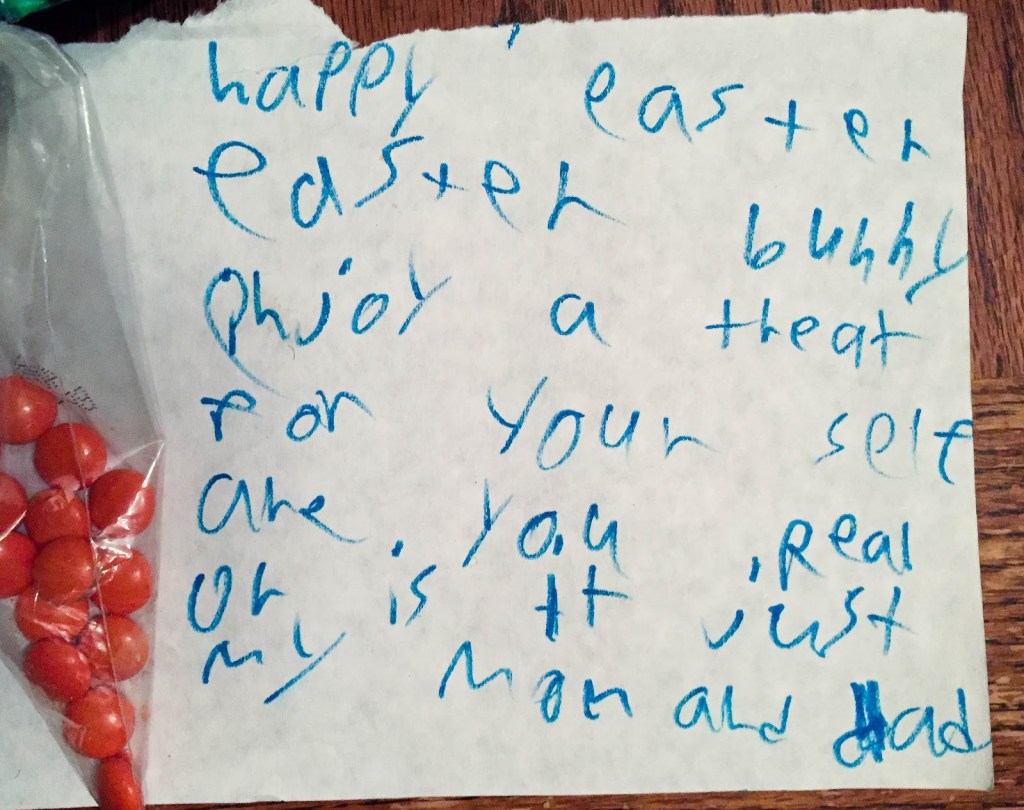 happy easter
easter bunny
enjoy a treat
for your self
are you real
or is it just
my mom and dad